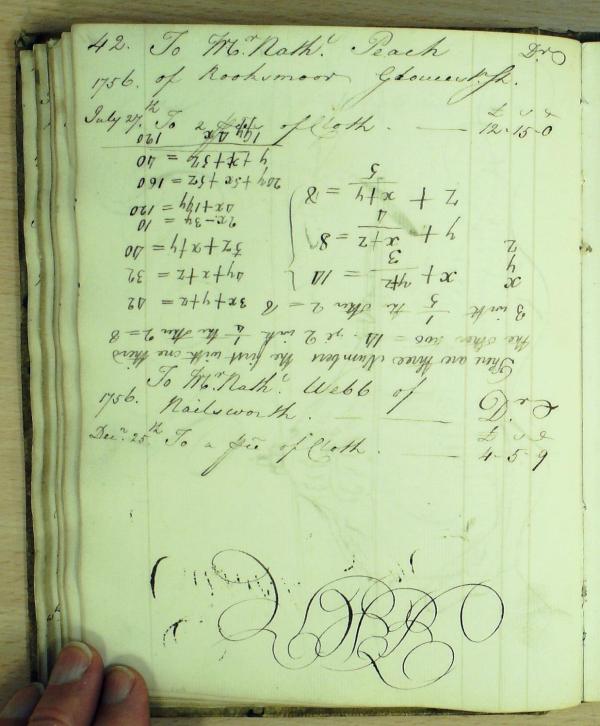 42. To Mr. Nathl. Peach Dr.
1756. of Rooksmoor Gloucestr. Sh.
£ s d
July 27th To 2 pps. of Cloth. 12-15-0
There are three Numbers the first with one third
the other two = 14. ye 2 with 1/4 the other 2 = 8
3 with 1/5 the other 2 = 8
3x+y+z = 42
x x + y+z/3 = 14
4y+x+z = 32
y y + x+z/4 = 8
5z+x+y = 40
z z + x+y/5 = 8
2x-3y = 10
4x+14y = 120
20y+5x+5z = 160
y+x+5z = 40
19y 4x
120
To Mr. Nathl. Webb of Dr.
1756. Nailsworth.
£ s d
Decr. 25th To a pie of Cloth. 4-5-9